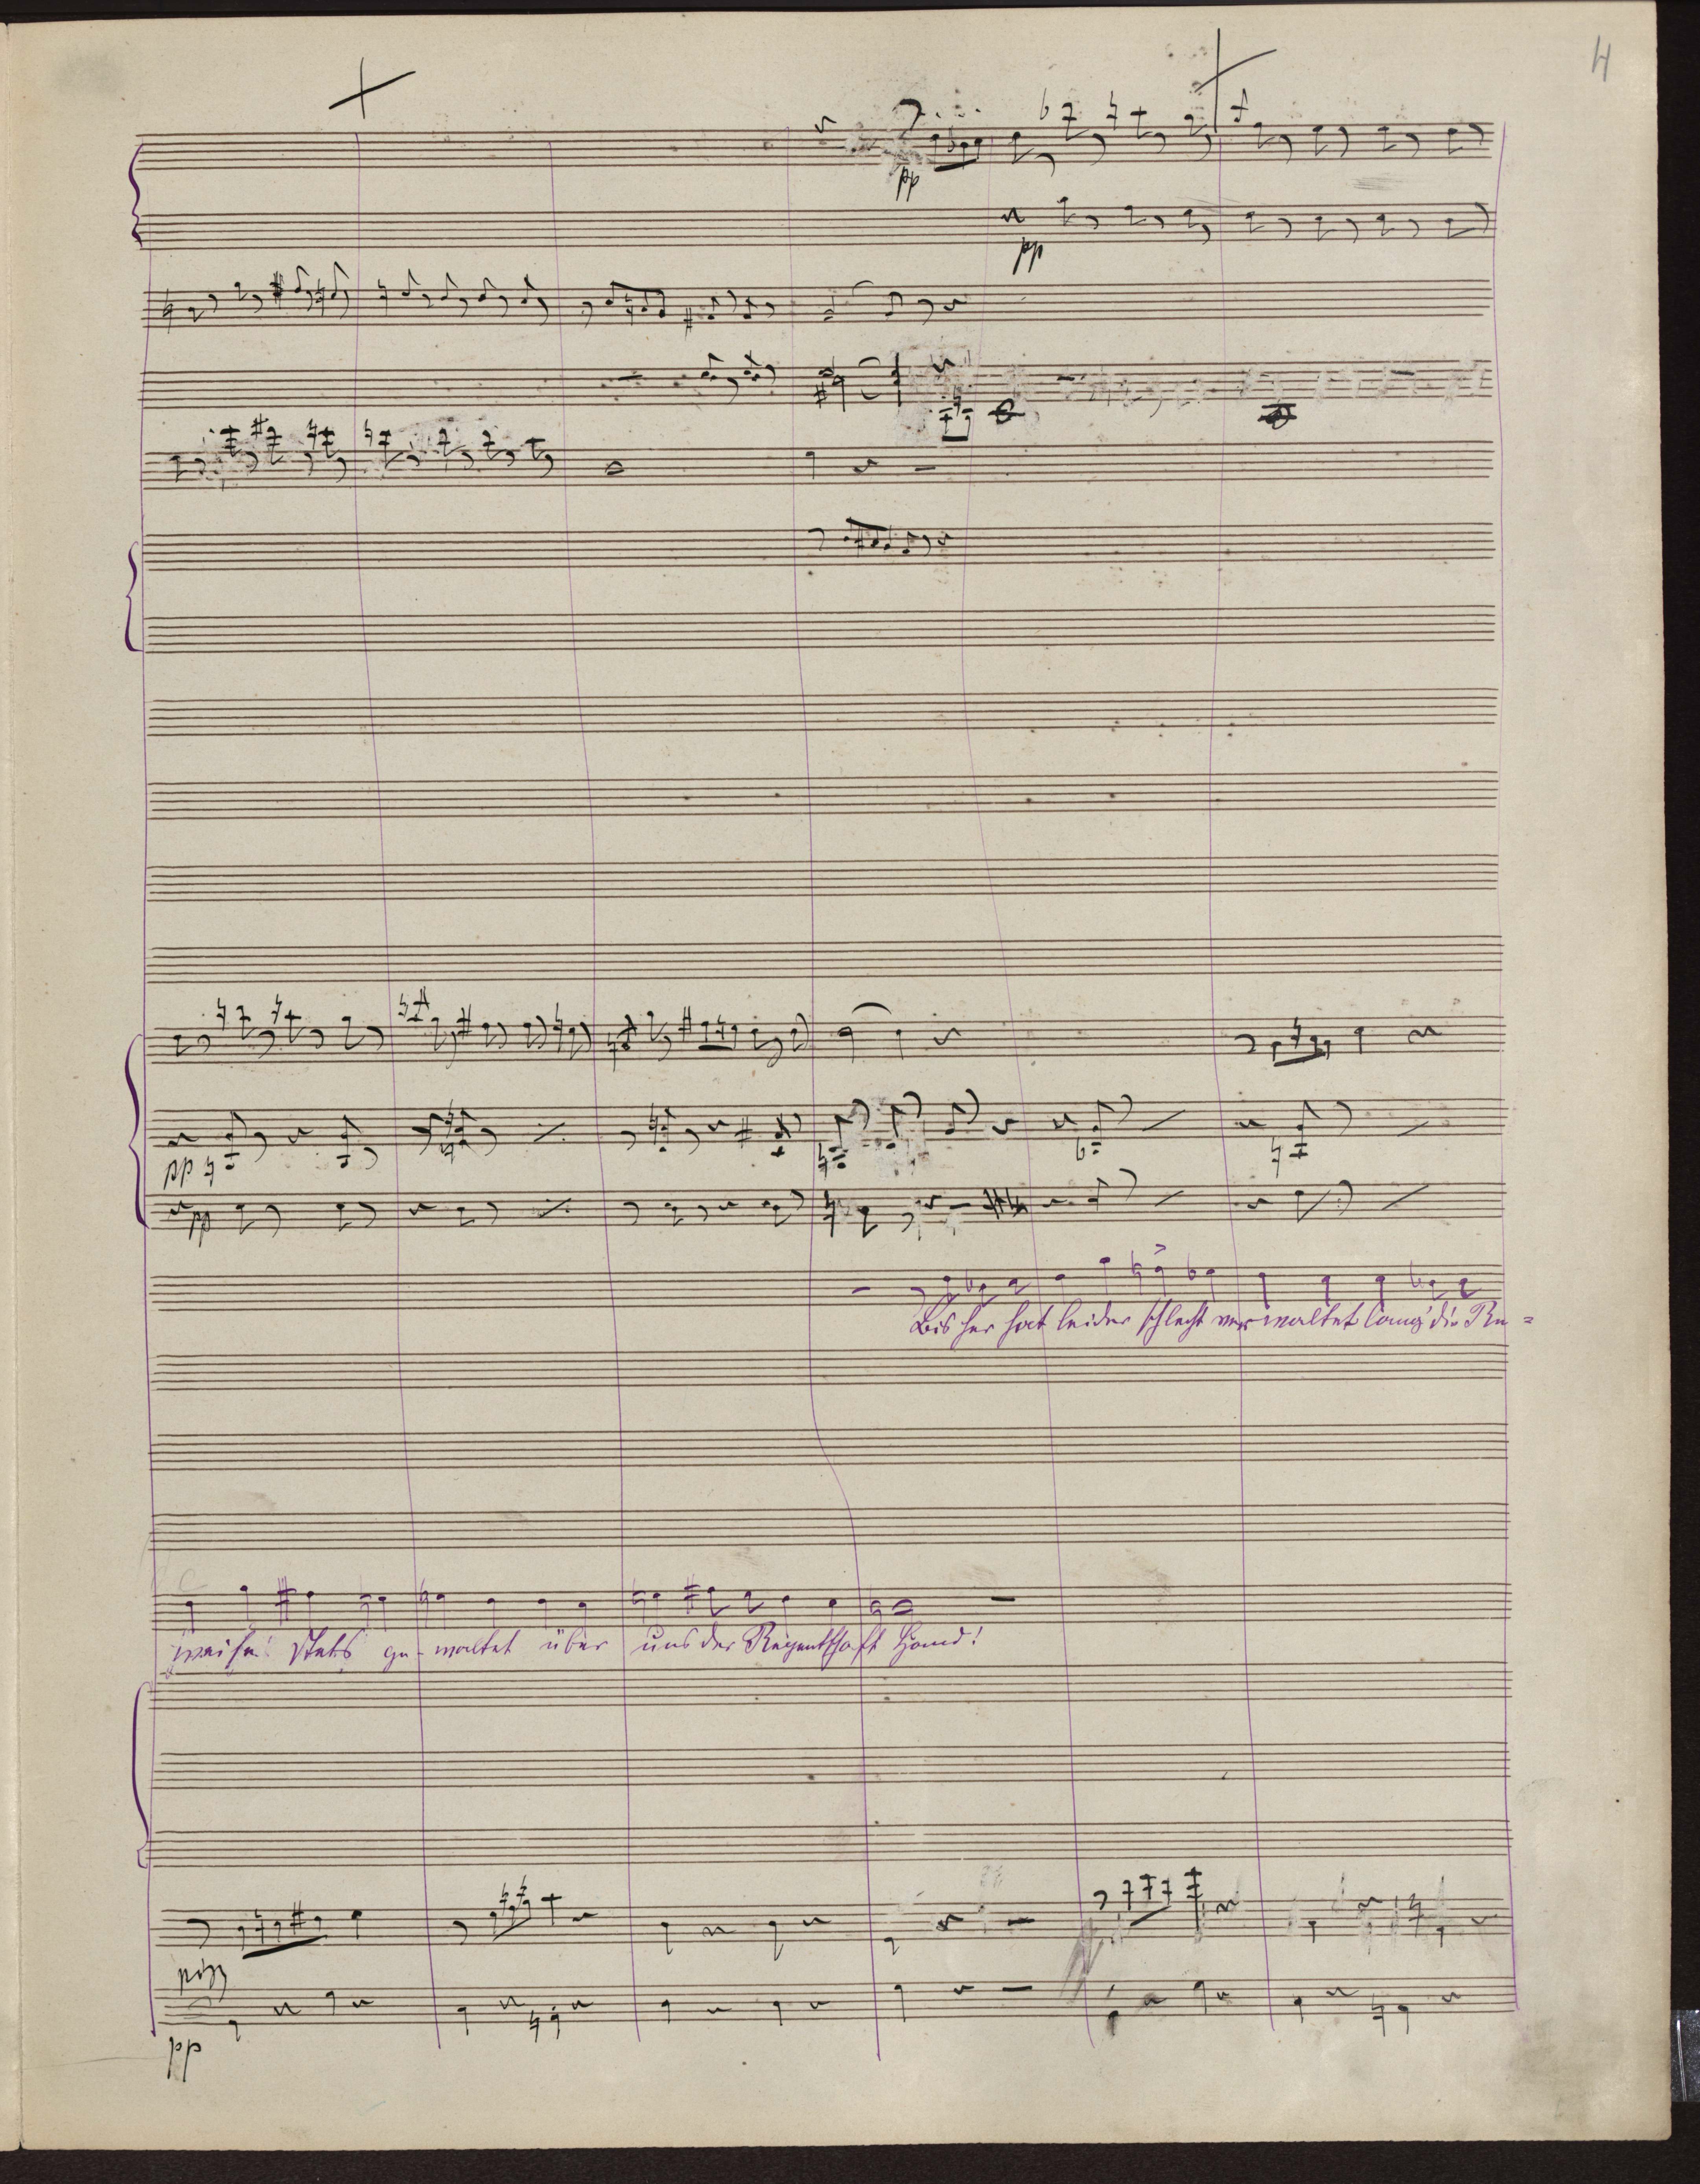 4
pp
pp
pp
pp
Bis her hat leider schlecht verwaltet lang' die Re=
weise! Stets ge-waltet über uns der Regentschaft Hand!
pizz
pp